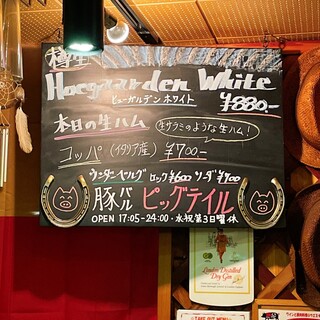 樽生
Hoegaarden White
ヒューガルデン ホワイト ¥880-
本日の生ハム
生サラミのような生ハム!
コッパ (イタリア産) ¥700-
ウンダーベルグ ロック¥600 ソーダ¥700
豚バル ピッグテイル
OPEN 17:05-24:00・水祝第3日曜休
London Distilled
Dry Gin
TAKE OUT MENU